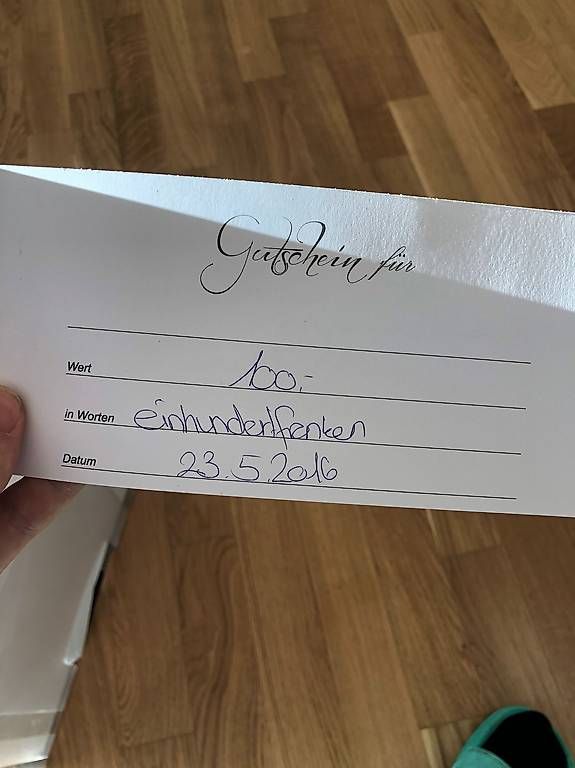 Gutschein für
Wert 100.-
in Worten einhundertfranken
Datum 23.5.2016